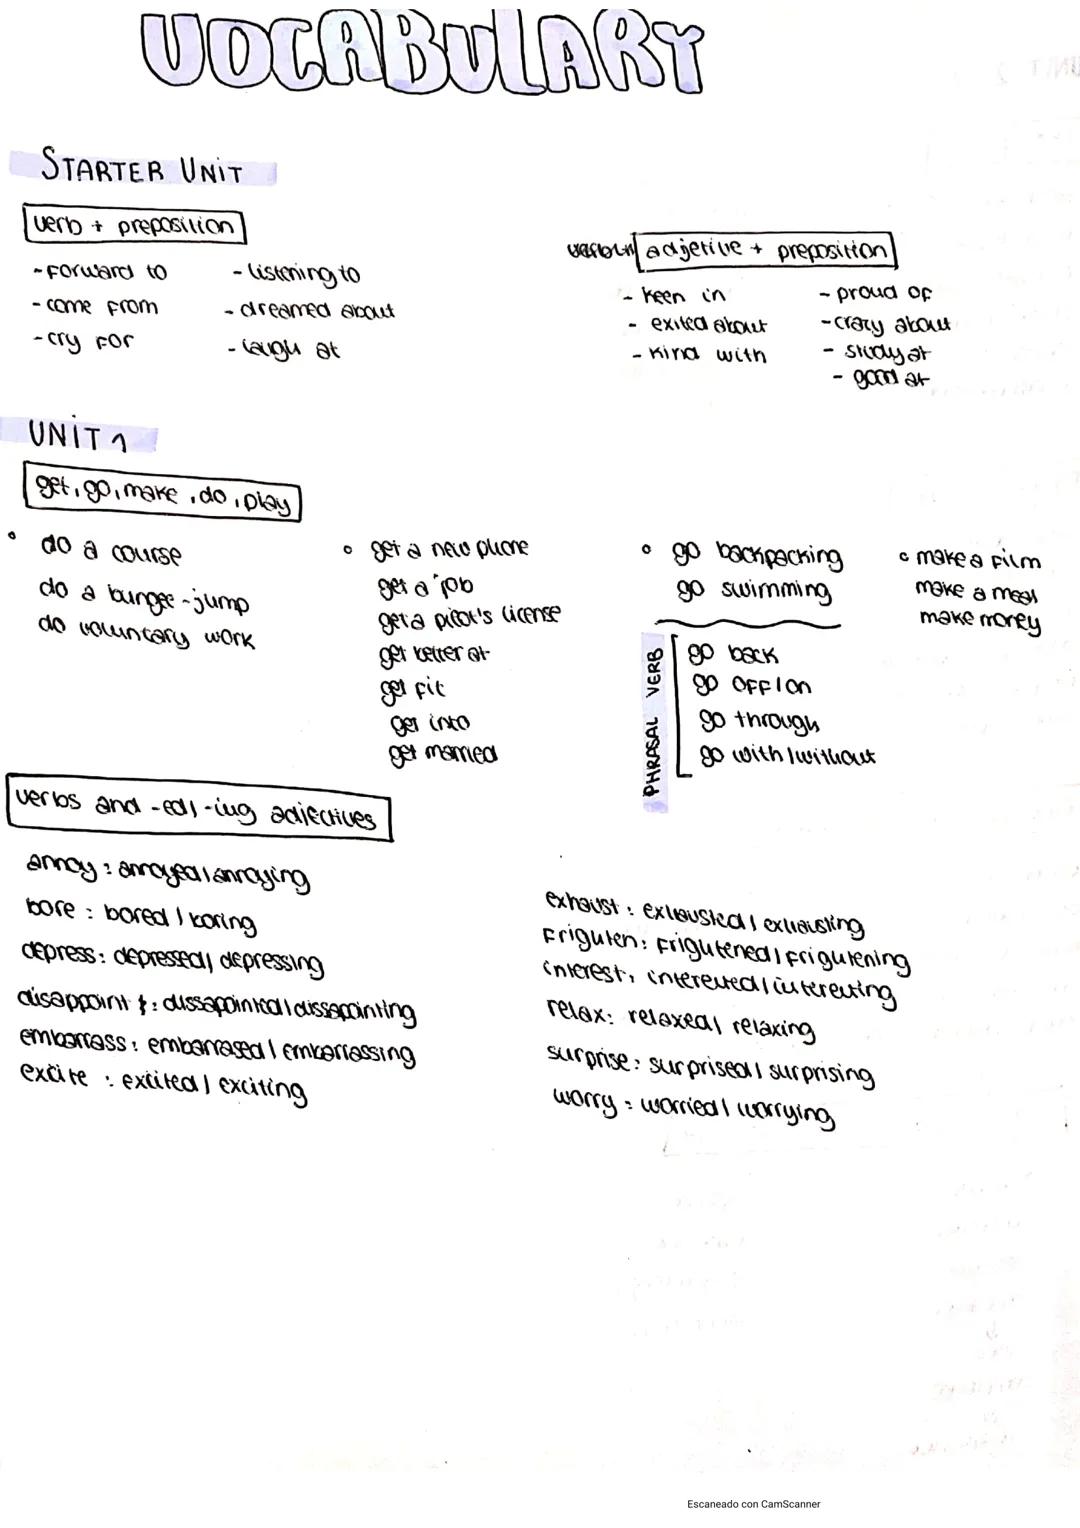 VOCABULARY
STARTER UNIT
verb + preposition
- forward to
- come from
- cry for
- listening to
- dreamed about
- laugh at
adjetive + preposition
- keen in
- exited about
- kind with
- proud of
- crazy about
- study at
- good at
UNIT 1
get, go, make, do, play
• do a course
do a bungee-jump
do voluntary work
• get a new phone
get a job
get a pilot's license
get better at
get fit
get into
get married
• go backpacking
go swimming
PHRASAL VERB
go back
go off/on
go through
go with/without
• make a film
make a meal
make money
verbs and -ed/-ing adjectives
annoy : annoyed/annoying
bore : bored/boring
depress : depressed/depressing
disappoint : dissapointed/dissapointing
embarrass : embarrased/embarrassing
excite : excited/exciting
exhaust : exhausted/exhausting
frighten : frightened/frightening
interest : interested/interesting
relax : relaxed/relaxing
surprise : surprised/surprising
worry : worried/worrying
Escaneado con CamScanner